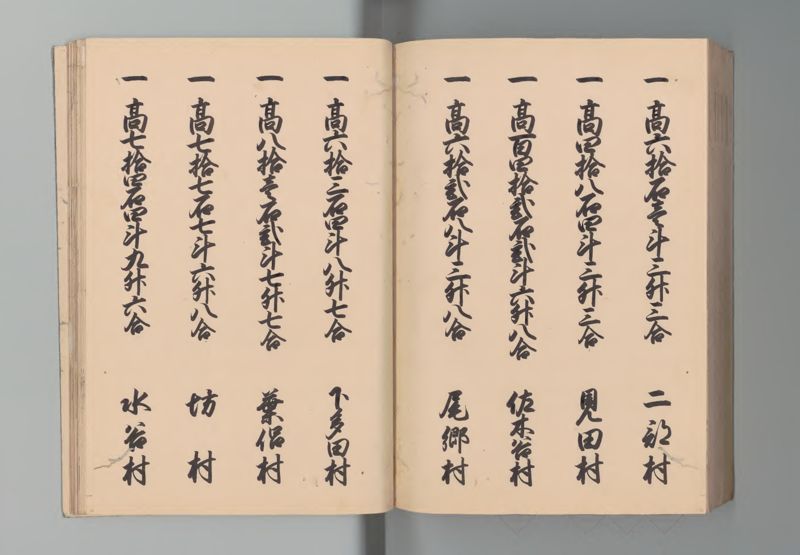 一 高六拾石壱斗三升三合 二部村
一 高四拾八石四斗三升三合 見田村
一 高百四拾弐石弐斗六升八合 佐木谷村
一 高六拾弐石八斗三升八合 尾郷村
一 高六拾三石四斗八升七合 下多田村
一 高八拾壱石弐斗七升七合 葉侶村
一 高七拾七石七斗六升八合 坊村
一 高七拾四石四斗九升六合 水谷村